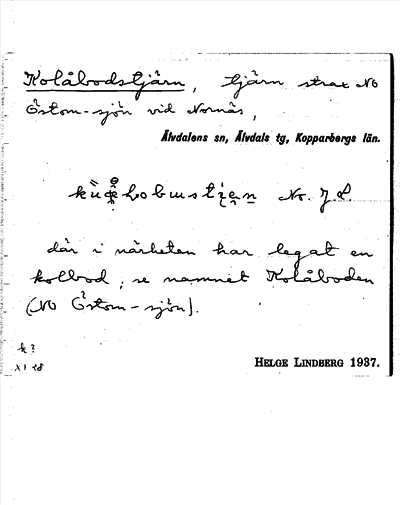 Kolåbodstjärn, tjärn strax NO
Östom-sjön vid Nornäs,
Älvdalens sn, Älvdals tg, Kopparbergs län.
där i närheten har legat en
kolbod, se namnet Kolåboden
(NO Östom-sjön).
k?
XI 18
HELGE LINDBERG 1937.